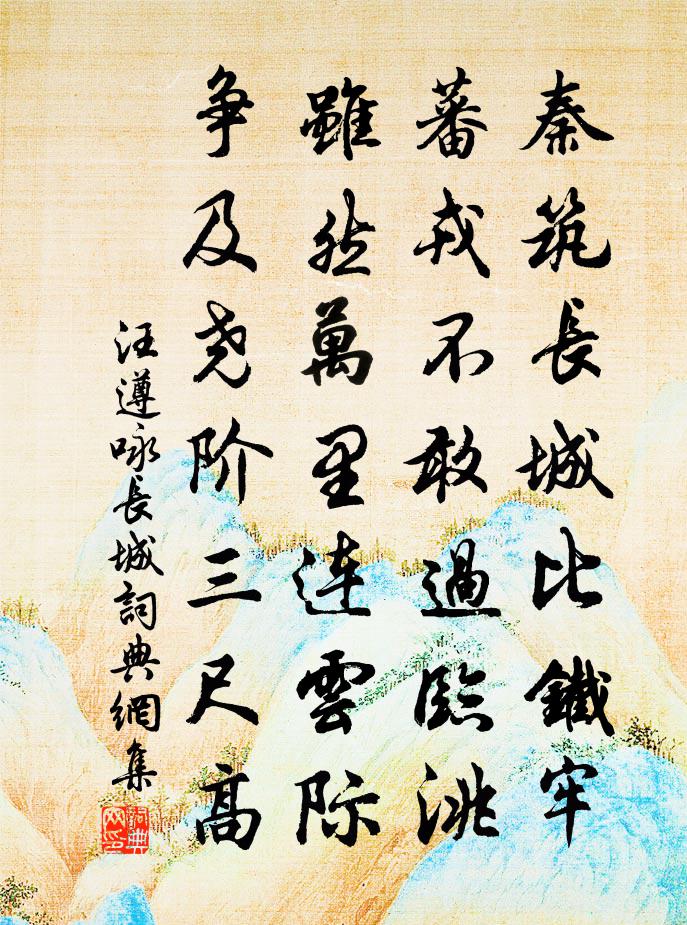 秦筑長城比鐵牢
蕃戎不敢過臨洮
雖然萬里連雲际
争及尧阶三尺高
汪遵咏長城詞典網集